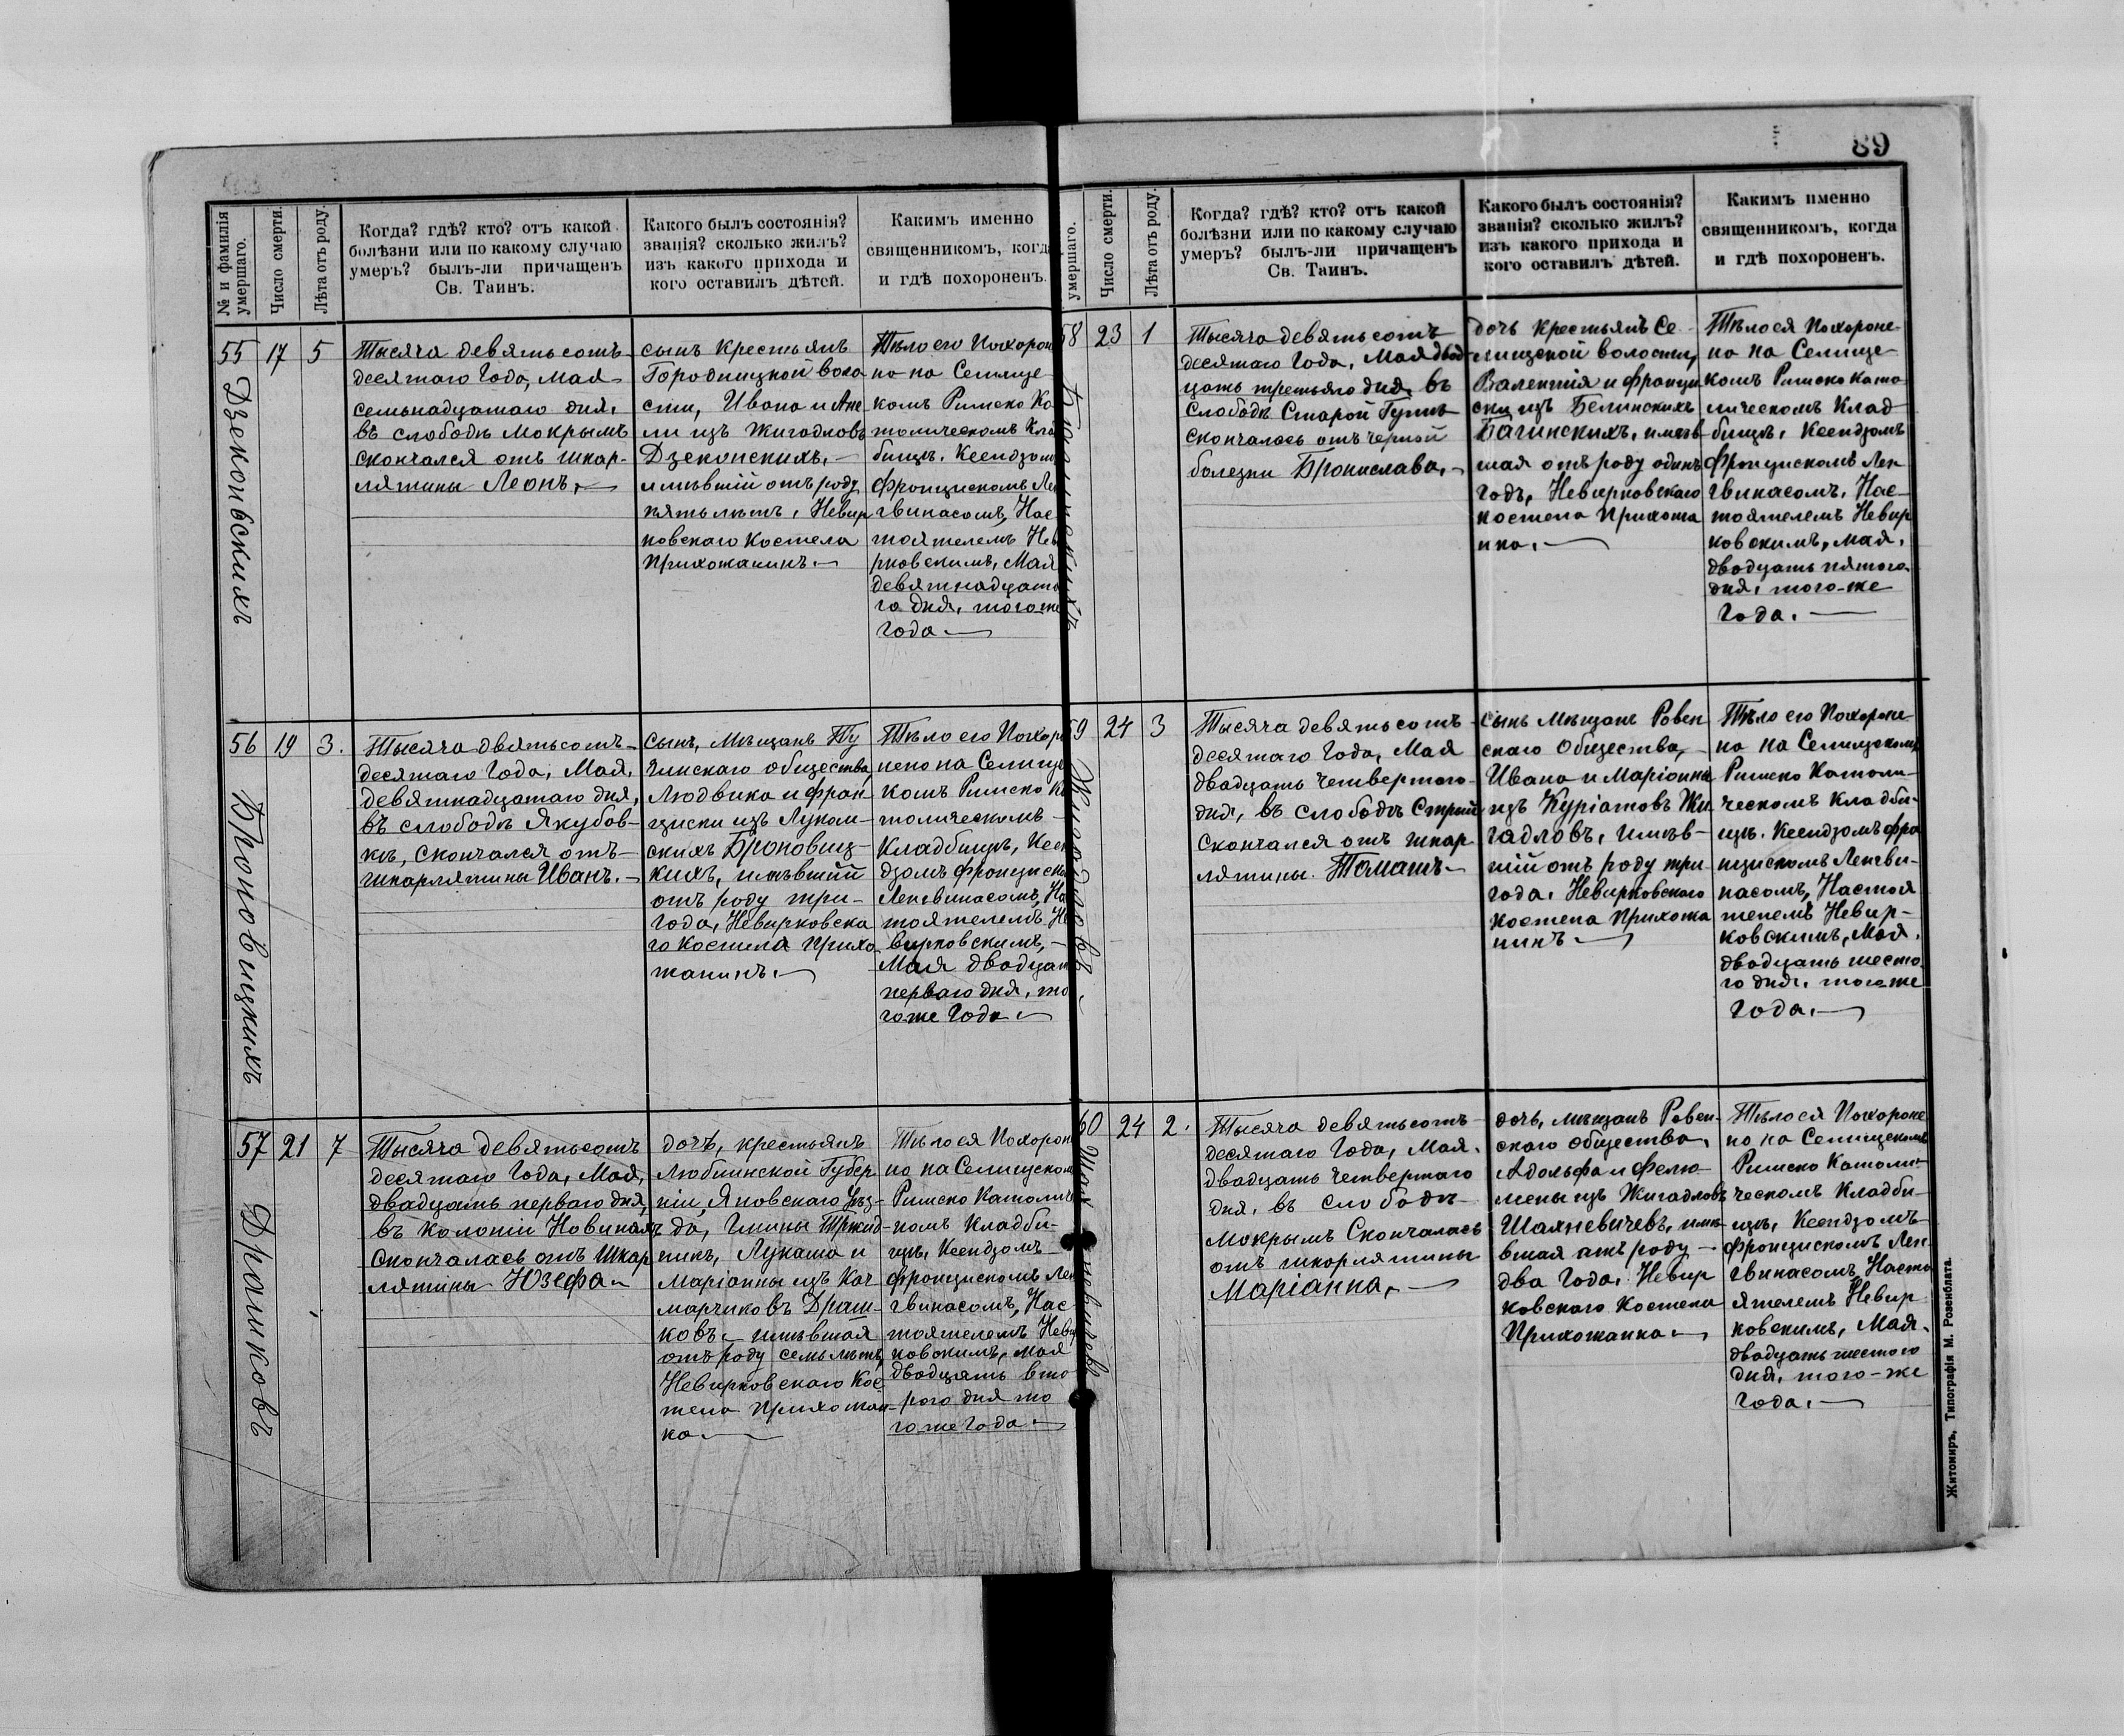 89
№ и фамилія умершаго.
Число смерти.
Лѣта отъ роду.
Когда? гдѣ? кто? отъ какой
болѣзни или по какому случаю
умеръ? былъ-ли причащенъ
Св. Таинъ.
Какого былъ состоянія?
званія? сколько жилъ?
изъ какого прихода и
кого оставилъ дѣтей.
Каким именно
священникомъ, когда
и гдѣ похороненъ.
55
Дзеконьскихъ
17
5
Тысяча девятьсотъ
десятаго Года, Мая
семьнадцатаго дня,
въ слободѣ Мокрымъ
скончался отъ шкар-
лятины Леонъ,
сынъ крестьянъ
Городницкой воло
сти, Ивана и Ане
ли изъ Жигадловъ
Дзеконскихъ,
имѣвшій отъ роду
пять лѣтъ, Невир
ковскаго Костела
Прихожанинъ.
Тѣло его Похорон
но на Селище
комъ Римско Ка
толическомъ Кла
бищѣ, Ксендзом
Францискомъ Лен
гвинасомъ, Нас
тоятелемъ Нев
рковскимъ, Мая
девятнадцата
го дня, тогоже
Года
56
Броновицкихъ
19
3.
Тысяча двятьсотъ
десятаго Года, Мая,
девятнадцатаго дня,
въ слободѣ Якубов-
кѣ, скончался отъ
шкарлятины Иванъ.
Сынъ, Мѣщанъ Ту
чинскаго общества,
Людвика и Фран
циски изъ Луком-
скихъ Броновиц-
кихъ, имѣвшій
отъ роду три
Года, Невирковска
го Костила Прихо
жанинъ.
Тѣло его Похоро
нено на Селище
комъ Римско Ка
толическомъ
Кладбищѣ, Ксен
дзомъ Францискомъ
Ленгвинасомъ, На
тоятелемъ Не
вирковскимъ,
Мая двадцат
перваго дня, то
гоже Года
57
Драшковъ
21
7
Тысяча девятьсотъ
десятаго Года, Мая,
двадцать перваго дня,
въ Колоніи Новинахъ
скончалась отъ Шкар
лятины Юзефа
дочь, крестьянъ
Люблинской Губер
ніи, Яновскаго Уѣз-
да, Гмины Тржид-
никъ, Лукаша и
Маріанны изъ Кач
марчиковъ Драш-
ковъ имѣвшая
отъ роду семь лѣтъ,
Невирковскаго Кос
тела Прихожан-
ка
Тѣло ея Похорон
но на Селищском
Римско Католич
комъ Кладби-
щѣ, Ксендзомъ
Францискомъ Лен
гвинасомъ, Нас
тоятелемъ Неви
ковскимъ, мая
двадцать вто
рого дня то
гоже Года
умершаго.
Число смерти.
Лѣта отъ роду.
Когда? гдѣ? кто? отъ какой
болѣзни или по какому случаю
умеръ? былъ-ли причащенъ
Св. Таинъ.
Какого былъ состоянія?
званія? сколько жилъ?
изъ какого прихода и
кого оставилъ дѣтей.
Какимъ именно
священникомъ, когда
и гдѣ похороненъ.
58
23
1
Тысяча девятьсотъ
десятаго Года, Мая двад
цать третьяго дня, въ
слободѣ Старой Гутѣ
скончалась отъ черной
болезни Бронислава,
дочь крестьянъ Се
лищской волости,
Валентія и Францы
ски изъ Белинскихъ
Багинскихъ, имѣв
шая отъ роду одинъ
Годъ, Невирковскаго
костела Прихожа
нка.
Тѣло ея Похороне
но на Селище
комъ Римско Като
лическомъ Клад
бищѣ, Ксендзомъ
Францискомъ Лен
гвинасомъ, Нас
тоятелемъ Невир
ковскимъ, Мая,
двадцать пятого
дня, того-же
Года.
59
Жигадловъ
24
3
Тысяча девятьсотъ
десятаго Года, Мая
двадцать четвертого
дня, въ слободѣ Стрий
скончался отъ шкар
лятины Томашъ
сынъ Мѣщанъ Ровен
скаго Общества,
Ивана и Маріанны
изъ Куріатовъ Жи
гадловъ, имѣв-
шій отъ роду три
года, Невирковскаго
Костела Прихожа
нинъ
Тѣло его Похороне
но на Селищскомъ
Римско Католи-
ческомъ Кладби-
щѣ, Ксендзомъ Фра
нцискомъ Ленгви-
насомъ, Настоя
телемъ Невир-
ковскимъ, Мая,
двадцать шесто
го дня, тогоже
Года.
60
24
2.
Тысяча девятьсотъ
десятаго Года, Мая,
двадцать четвертаго
дня, въ слободѣ
Мокрымъ Скончалась
отъ шкорлятины
Маріанна,
дочь, мѣщанъ Ровен-
скаго общества,
Адольфа и Фелю-
мены изъ Жигадловъ
Шахневичевъ, имѣ
вшая отъ роду
два Года, Невир
ковскаго Костела
Прихожанка
Тѣло ея Похороне
но на Селищскомъ
Римско Католи-
ческомъ Кладби-
щѣ, Ксендзомъ
Францискомъ Лен-
гвинасомъ, Насто
ятелемъ Невир
ковскимъ, Мая,
двадцать шестого
дня, того-же
Года.
Житомиръ, Типографія М. Розенблата.